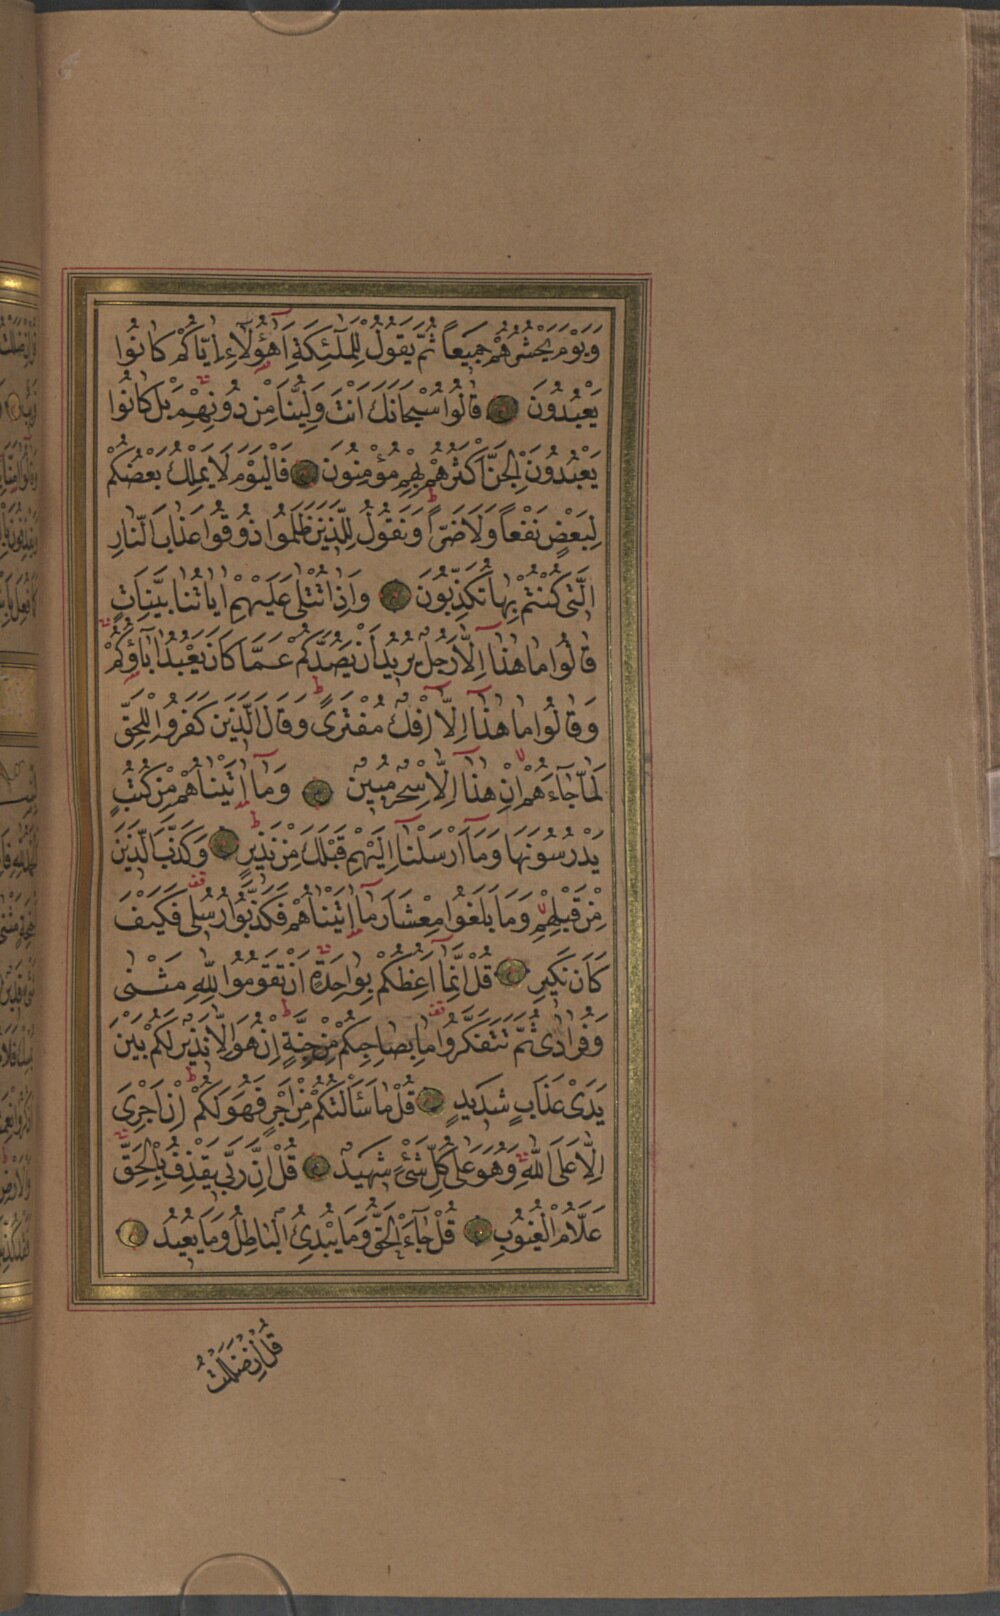 وَيَوْمَ يَحْشُرُهُمْ جَمِيعاً ثُمَّ يَقُولُ لِلْمَلٰٓئِكَةِ اَهٰٓؤُلَٓاءِ اِيَّاكُمْ كَانُوا
يَعْبُدُونَ قَالُوا سُبْحَانَكَ اَنْتَ وَلِيُّنَا مِنْ دُونِهِمْ بَلْ كَانُوا
يَعْبُدُونَ الْجِنَّ اَكْثَرُهُمْ بِهِمْ مُؤْمِنُونَ فَالْيَوْمَ لَا يَمْلِكُ بَعْضُكُمْ
لِبَعْضٍ نَفْعاً وَلَا ضَرّاً وَنَقُولُ لِلَّذِينَ ظَلَمُوا ذُوقُوا عَذَابَ النَّارِ
الَّتِى كُنْتُمْ بِهَا تُكَذِّبُونَ وَاِذَا تُتْلٰى عَلَيْهِمْ اٰيَاتُنَا بَيِّنَاتٍ
قَالُوا مَا هٰذَٓا اِلَّا رَجُلٌ يُرِيدُ اَنْ يَصُدَّكُمْ عَمَّا كَانَ يَعْبُدُ اٰبَٓاؤُكُمْ
وَقَالُوا مَا هٰذَٓا اِلَّٓا اِفْكٌ مُفْتَرًى وَقَالَ الَّذِينَ كَفَرُوا لِلْحَقِّ
لَمَّا جَٓاءَهُمْ اِنْ هٰذَٓا اِلَّا سِحْرٌ مُبِينٌ وَمَٓا اٰتَيْنَاهُمْ مِنْ كُتُبٍ
يَدْرُسُونَهَا وَمَٓا اَرْسَلْنَٓا اِلَيْهِمْ قَبْلَكَ مِنْ نَذِيرٍ وَكَذَّبَ الَّذِينَ
مِنْ قَبْلِهِمْ وَمَا بَلَغُوا مِعْشَارَ مَٓا اٰتَيْنَاهُمْ فَكَذَّبُوا رُسُلِى فَكَيْفَ
كَانَ نَكِيرِ قُلْ اِنَّمَٓا اَعِظُكُمْ بِوَاحِدَةٍ اَنْ تَقُومُوا لِلّٰهِ مَثْنٰى
وَفُرَادٰى ثُمَّ تَتَفَكَّرُوا مَا بِصَاحِبِكُمْ مِنْ جِنَّةٍ اِنْ هُوَ اِلَّا نَذِيرٌ لَكُمْ بَيْنَ
يَدَىْ عَذَابٍ شَدِيدٍ قُلْ مَا سَأَلْتُكُمْ مِنْ اَجْرٍ فَهُوَ لَكُمْ اِنْ اَجْرِىَ
اِلَّا عَلَى اللّٰهِ وَهُوَ عَلٰى كُلِّ شَىْءٍ شَهِيدٌ قُلْ اِنَّ رَبِّى يَقْذِفُ بِالْحَقِّ
عَلَّامُ الْغُيُوبِ قُلْ جَٓاءَ الْحَقُّ وَمَا يُبْدِئُ الْبَاطِلُ وَمَا يُعِيدُ
قُلْ اِنْ ضَلَلْتُ